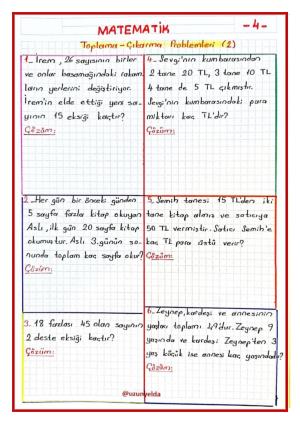 MATEMATİK
-4-
Toplama-Çıkarma Problemleri (2)
1_ İrem, 26 sayısının birler
ve onlar basamağındaki rakam
ların yerlerini değiştiriyor.
İrem'in elde ettiği yeni sa-
yının 15 eksiği kaçtır?
Çözüm:
2_Her gün bir önceki günden
5 sayfa fazla kitap okuyan
Aslı, ilk gün 20 sayfa kitap
okumuştur. Aslı 3.günün so-
nunda toplam kaç sayfa okur?
Çözüm:
3. 18 fazlası 45 olan sayının
2 deste eksiği kaçtır?
Çözüm:
4_ Sevgi'nin kumbarasından
2 tane 20 TL, 3 tane 10 TL
4 tane de 5 TL çıkmıştır.
Sevgi'nin kumbarasındaki para
miktarı kaç TL'dir?
Çözüm:
5. Semih tanesi 15 TL'den iki
tane kitap almış ve satıcıya
50 TL vermiştir. Satıcı Semih'e
kaç TL para üstü verir?
Çözüm:
6. Zeynep, kardeşi ve annesinin
yaşları toplamı 49'dur. Zeynep 9
yaşında ve kardeşi Zeynep'ten 3
yaş küçük ise annesi kaç yaşındadır?
Çözüm:
@uzunyelda